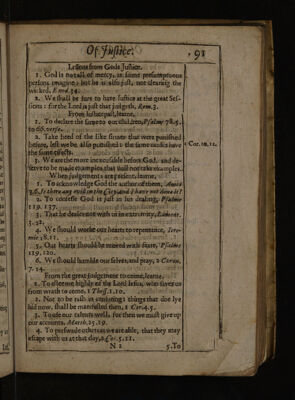 Of Justice. 91
Lessons from Gods Justice.
1. God is not all of mercy, as some presumptuous
persons imagine: but he is also just, not clearing the
wicked. Exod. 34.
2. We shall be sure to have Justice at the great Ses-
sions: for the Lord is just that judgeth, Rom. 3.
From Justice past, learne,
1. To declare the same to our children, Psalme 78.5.
to 66. verse.
2. Take heed of the like sinnes that were punished
before, lest we be also punished: the same causes have
the same effects.
1 Cor. 10.11.
3. We are the more inexcusable before God, and de-
serve to be made examples, that will not take example.
When judgements are present, learne,
1. To acknowledge God the author of them, Amos
3.6. Is there any evill in the City, and I have not done it?
2. To confesse God is just in his dealing, Psalme
119. 137.
3. That he deales not with us in extremity, Lament.
3. 22.
4. We should worke our hearts to repentance, Jere-
mie 18.11.
5. Our hearts should be moved with feare, Psalme
119. 120.
6. We should humble our selves, and pray, 2 Chron.
7. 14.
From the great judgement to come, learne,
1. To esteeme highly of the Lord Jesus, who saves us
from wrath to come, 1 Thess. 1.10.
2. Not to be rash in censuring: things that doe lye
hid now, shall be manifested then, 1 Cor. 4.5.
3. To use our talents well, for then we must give up
our accounts, Matth. 25.19.
4. To perswade others as we are able, that they may
escape with us at that day, 2 Cor. 5.11.
N 2 5. To